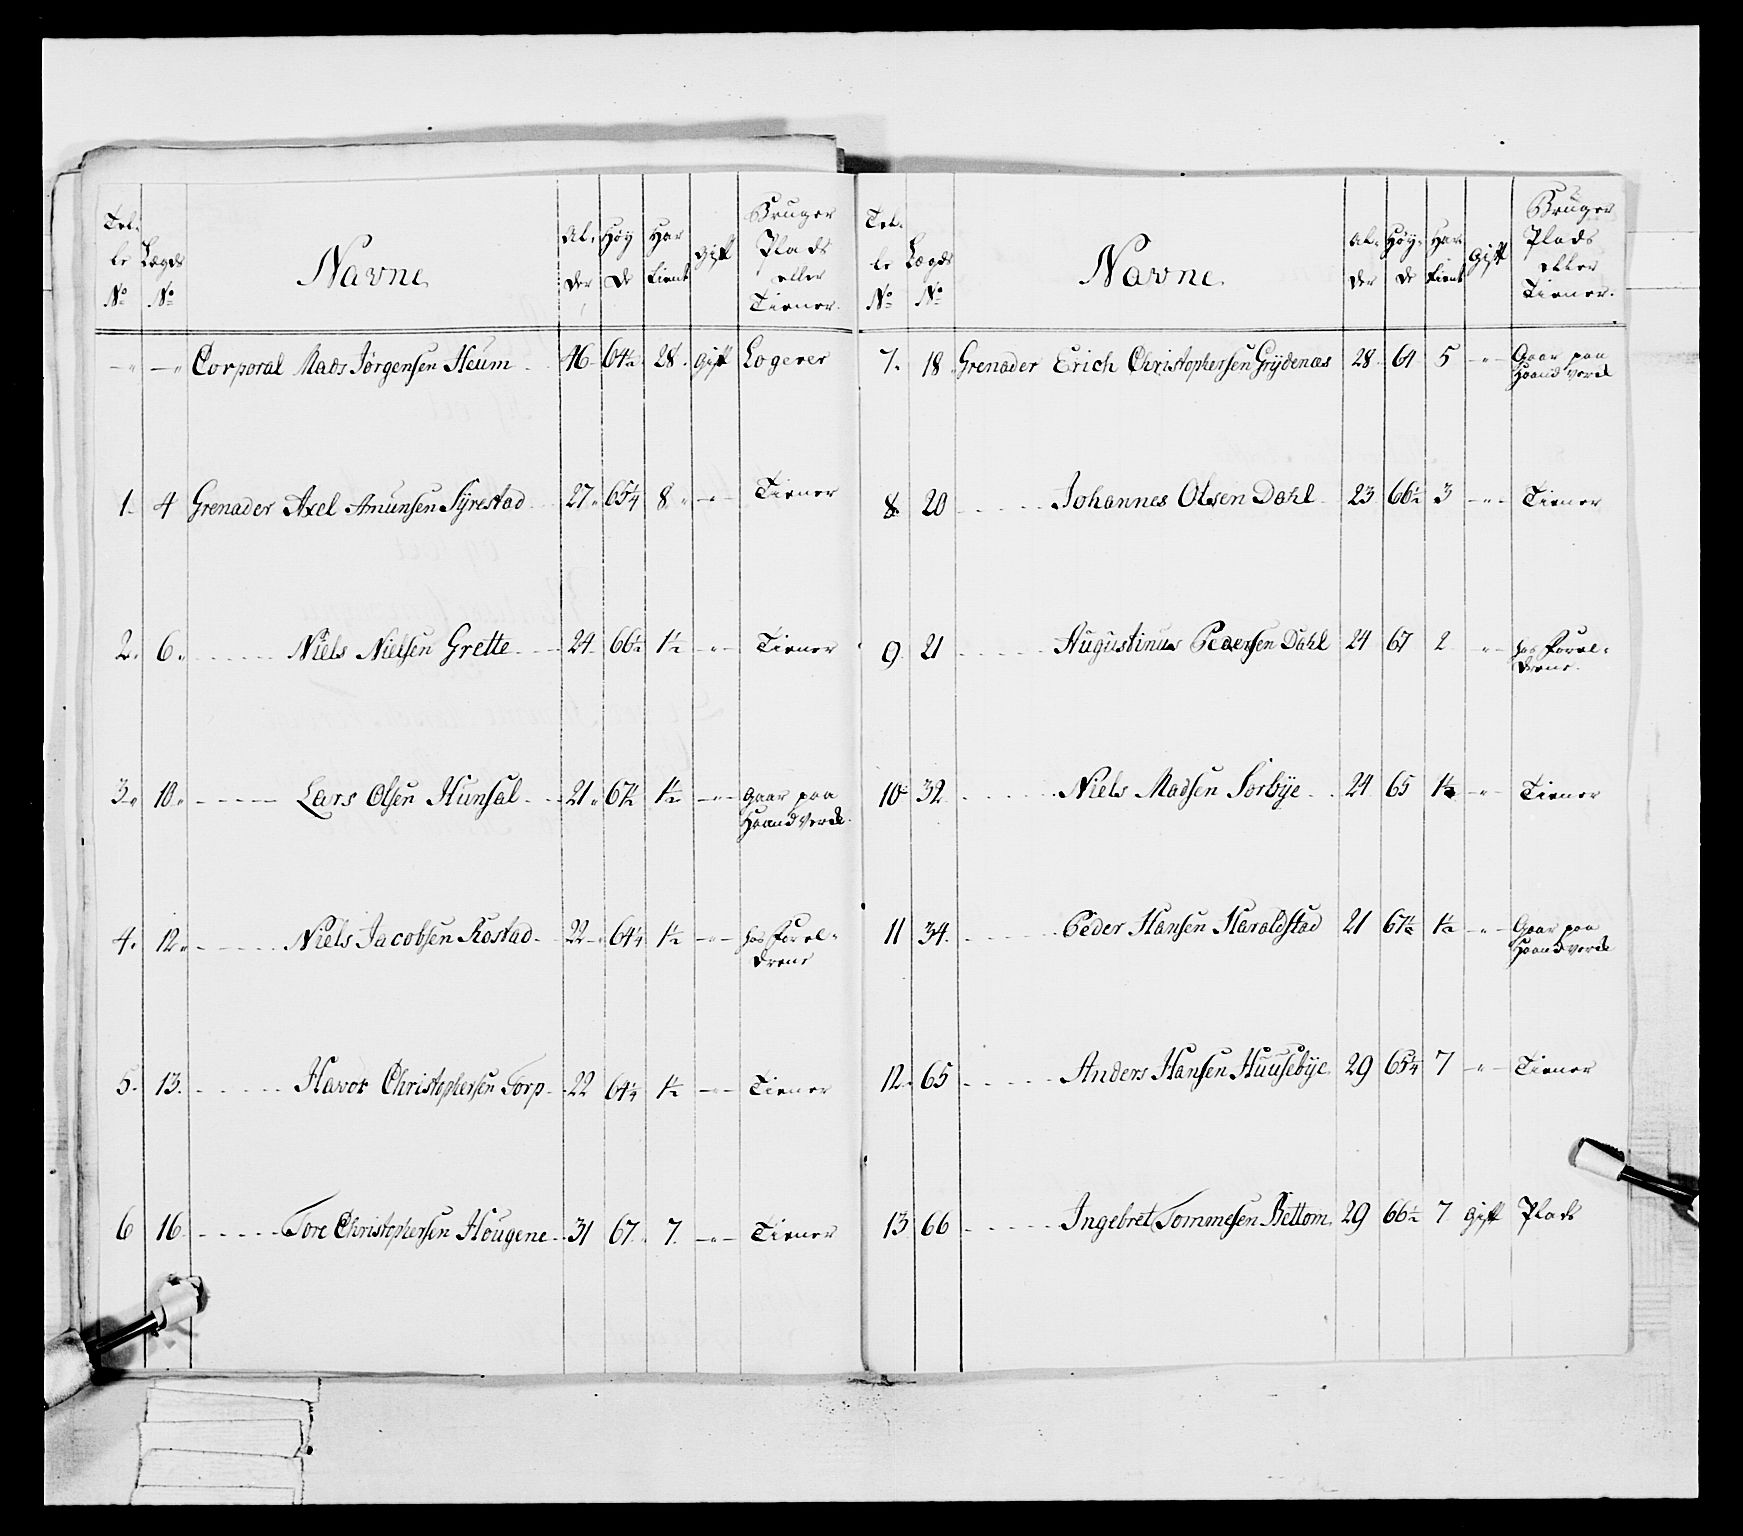 Tel- le No | Lægds No | Navne | Al- der | Høy de | Har tient | Gift | Bruger Plads eller Tiener.
-"- | -"- | Corporal Mads Jørgensen Heum | 46 | 64½ | 28 | Gift | Logerer
1. | 4 | Grenader Axel Amunsen Syrestad | 27 | 65¼ | 8 | -"- | Tiener
2. | 6 | - - - - Niels Nielsen Grette | 24 | 66½ | 1½ | -"- | Tiener
3. | 10 | - - - - Lars Olsen Hunsal | 21 | 67½ | 1½ | -"- | Gaar paa
Haandverk.
4. | 12 | - - - - Niels Jacobsen Rostad | 22 | 64¼ | 1½ | -"- | hos Forel-
drene
5. | 13. | - - - - Havor Christophersen Torp | 22 | 64¼ | 1½ | -"- | Tiener
6 | 16 | - - - - Tore Christophersen Hougene | 31 | 67 | 7. | -"- | Tiener
Tel- le No | Lægds No | Navne. | Al- der | Høy- de | Har tient | Gift | Bruger Plads eller Tiener.
7. | 18 | Grenader Erich Christophersen Grydenæs | 28 | 64 | 5 | -"- | Gaar paa
Haandverk
8. | 20 | - - - - Johannes Olsen Dahl | 23 | 66½ | 3 | -"- | Tiener
9 | 21 | - - - - Augustinus Pedersen Dahl | 24 | 67 | 2 | -"- | hos Forel-
drene.
10 | 32 | - - - - Niels Madsen Sorbye | 24 | 65 | 1½ | -"- | Tiener
11 | 34. | - - - - Peder Hansen Haraldstad | 21 | 67½ | 1½ | -"- | Gaar paa
Haandverk
12. | 65 | - - - - Anders Hansen Huusebye | 29 | 65¼ | 7 | -"- | Tiener
13 | 66 | - - - - Ingebret Tommesen Bettom | 29 | 66½ | 7 | Gift | Plads